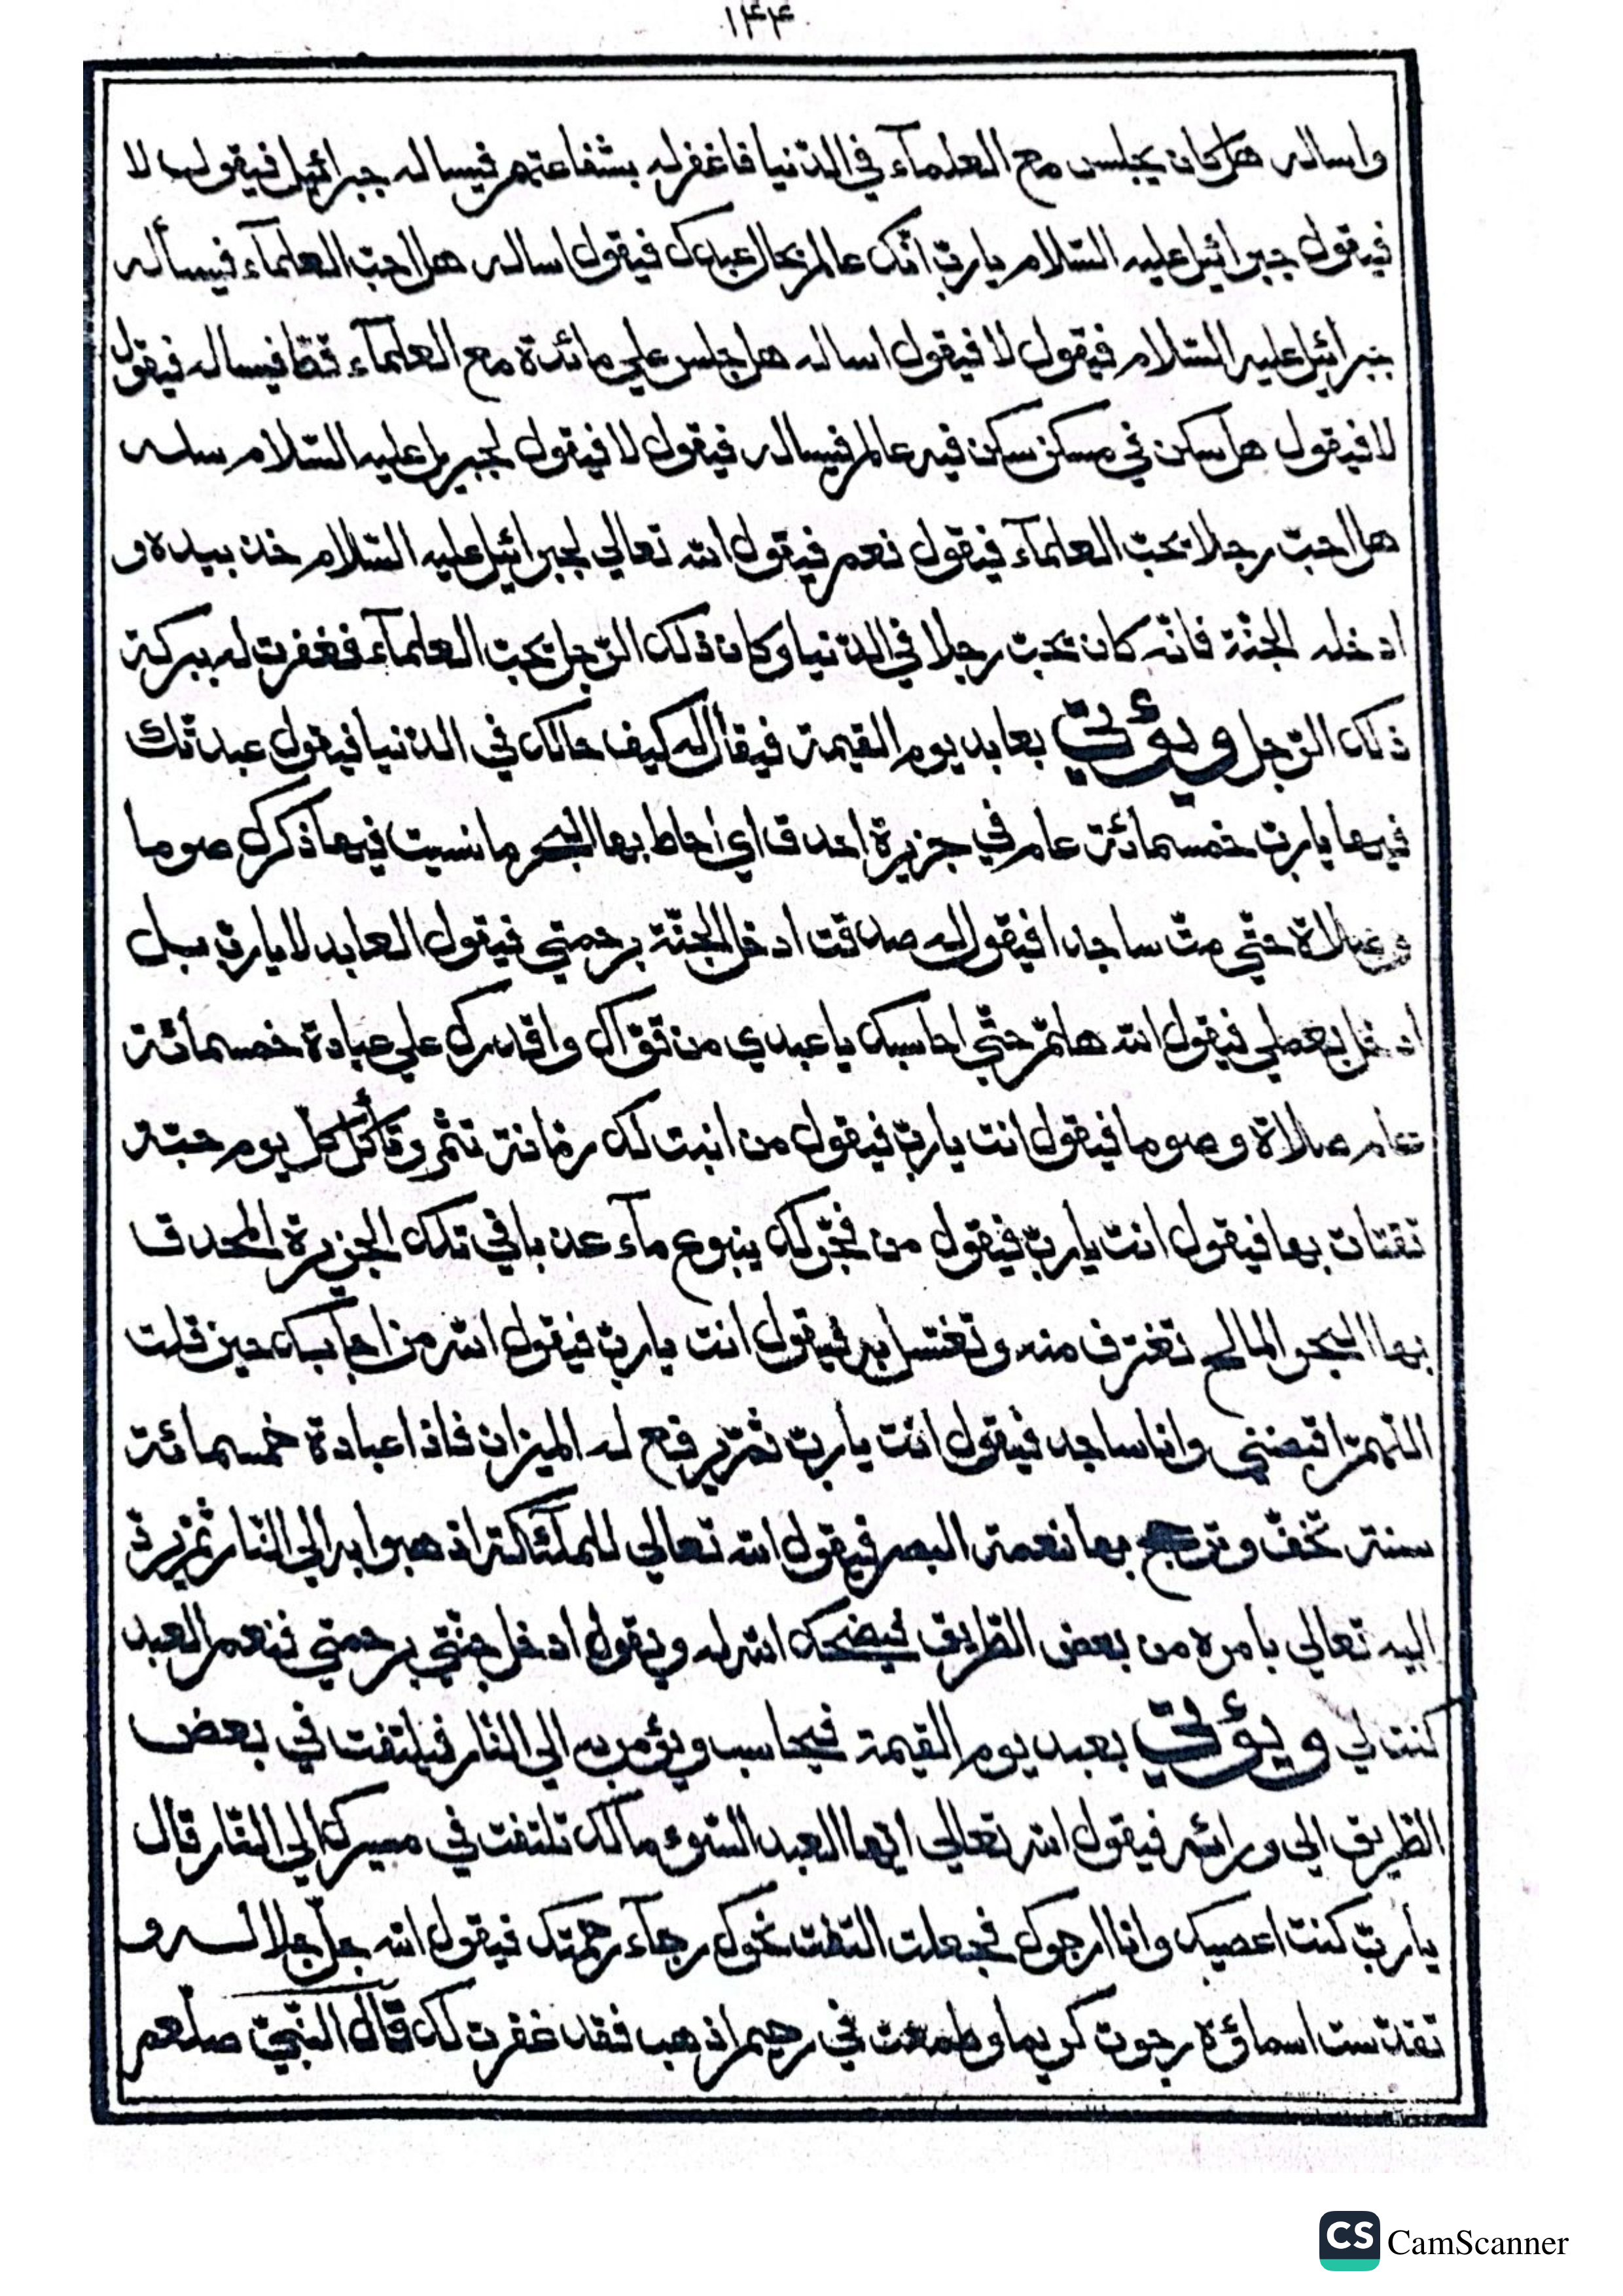 ١٤٤
واساله هل كان يجلس مع العلمآء في الدّنيا فاغفر له بشفاعتهم فيساله جبرائيل فيقول لا
فيقول جبرائيل عليه السّلام يا ربّ انّك عالم بحال عبدك فيقول اساله هل احبّ العلمآء فيسأله
جبرائيل عليه السّلام فيقول لا فيقول اساله هل جلس علي مائدة مع العلمآء قطّ فيساله فيقول
لا فيقول هل سكن في مسكن سكن فيه عالم فيساله فيقول لا فيقول لجبريل عليه السّلام سله
هل احبّ رجلا يحبّ العلمآء فيقول نعم فيقول الله تعالي لجبرائيل عليه السّلام خذ بيده و
ادخله الجنّة فانّه كان يحبّ رجلا في الدّنيا و كان ذلك الرّجل يحبّ العلمآء فغفرت له ببركة
ذلك الرّجل ويؤتي بعابد يوم القيمة فيقال له كيف حالك في الدّنيا فيقول عبدتك
فيها يا ربّ خمسمائة عام في جزيرة احدق اي احاط بها البحر ما نسيت فيها ذكرك صوما
وصلاة حتّي متّ ساجدا فيقول له صدقت ادخل الجنّة برحمتي فيقول العابد لا يا ربّ بل
ادخل بعملي فيقول الله هلمّ حتّي احاسبك يا عبدي من قوّاك واقدرك علي عبادة خمسمائة
عام صلاة وصوما فيقول انت يا ربّ فيقول من انبت لك رمّانة تثمر وتأكل كلّ يوم حبّة
تقتات بها فيقول انت يا ربّ فيقول من فجّر لك ينبوع مآء عذبا في تلك الجزيرة المحدق
بها البحر المالح تغترف منه وتغتسل به فيقول انت يا ربّ فيقول الله من اجابك حين قلت
اللّهمّ اقبضني وانا ساجد فيقول انت يا ربّ ثمّ يرفع له الميزان فاذا عبادة خمسمائة
سنة تخفّ وترجح بها نعمة البصر فيقول الله تعالي للملآئكة اذهبوا به الي النّار ثمّ يردّ
اليه تعالي بامره من بعض الطّريق فيضحك الله له ويقول ادخل جنّتي برحمتي فنعم العبد
كنت لي ويؤتي بعبد يوم القيمة فيحاسب ويؤمر به الي النّار فيلتفت في بعض
الطّريق الي ورائه فيقول الله تعالي ايّها العبد السّوء مالك تلتفت في مسيرك الي النّار قال
يا ربّ كنت اعصيك وانا ارجوك فجعلت التفت نحوك رجآء رحمتك فيقول الله جلّ جلاله و
تقدّست اسماؤه رجوت كريما وطمعت في رحيم اذهب فقد غفرت لك قال النّبيّ صلّعم
CS CamScanner